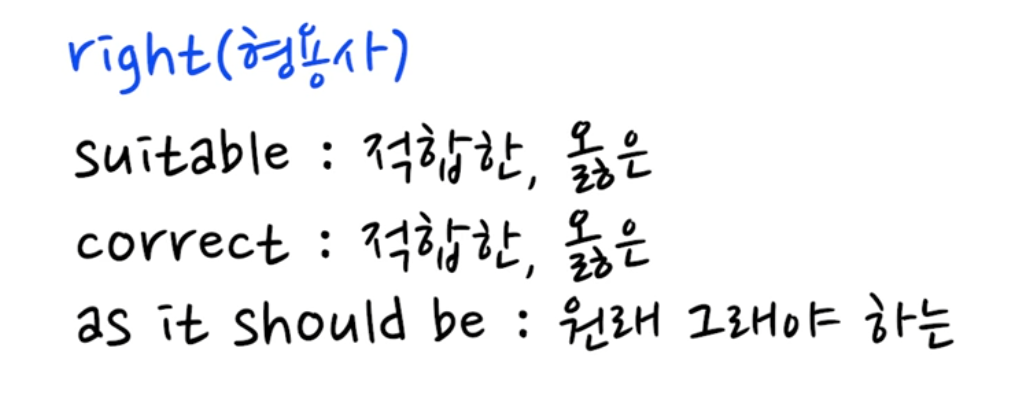 right(형용사)
suitable : 적합한, 옳은
correct : 적합한, 옳은
as it should be : 원래 그래야 하는